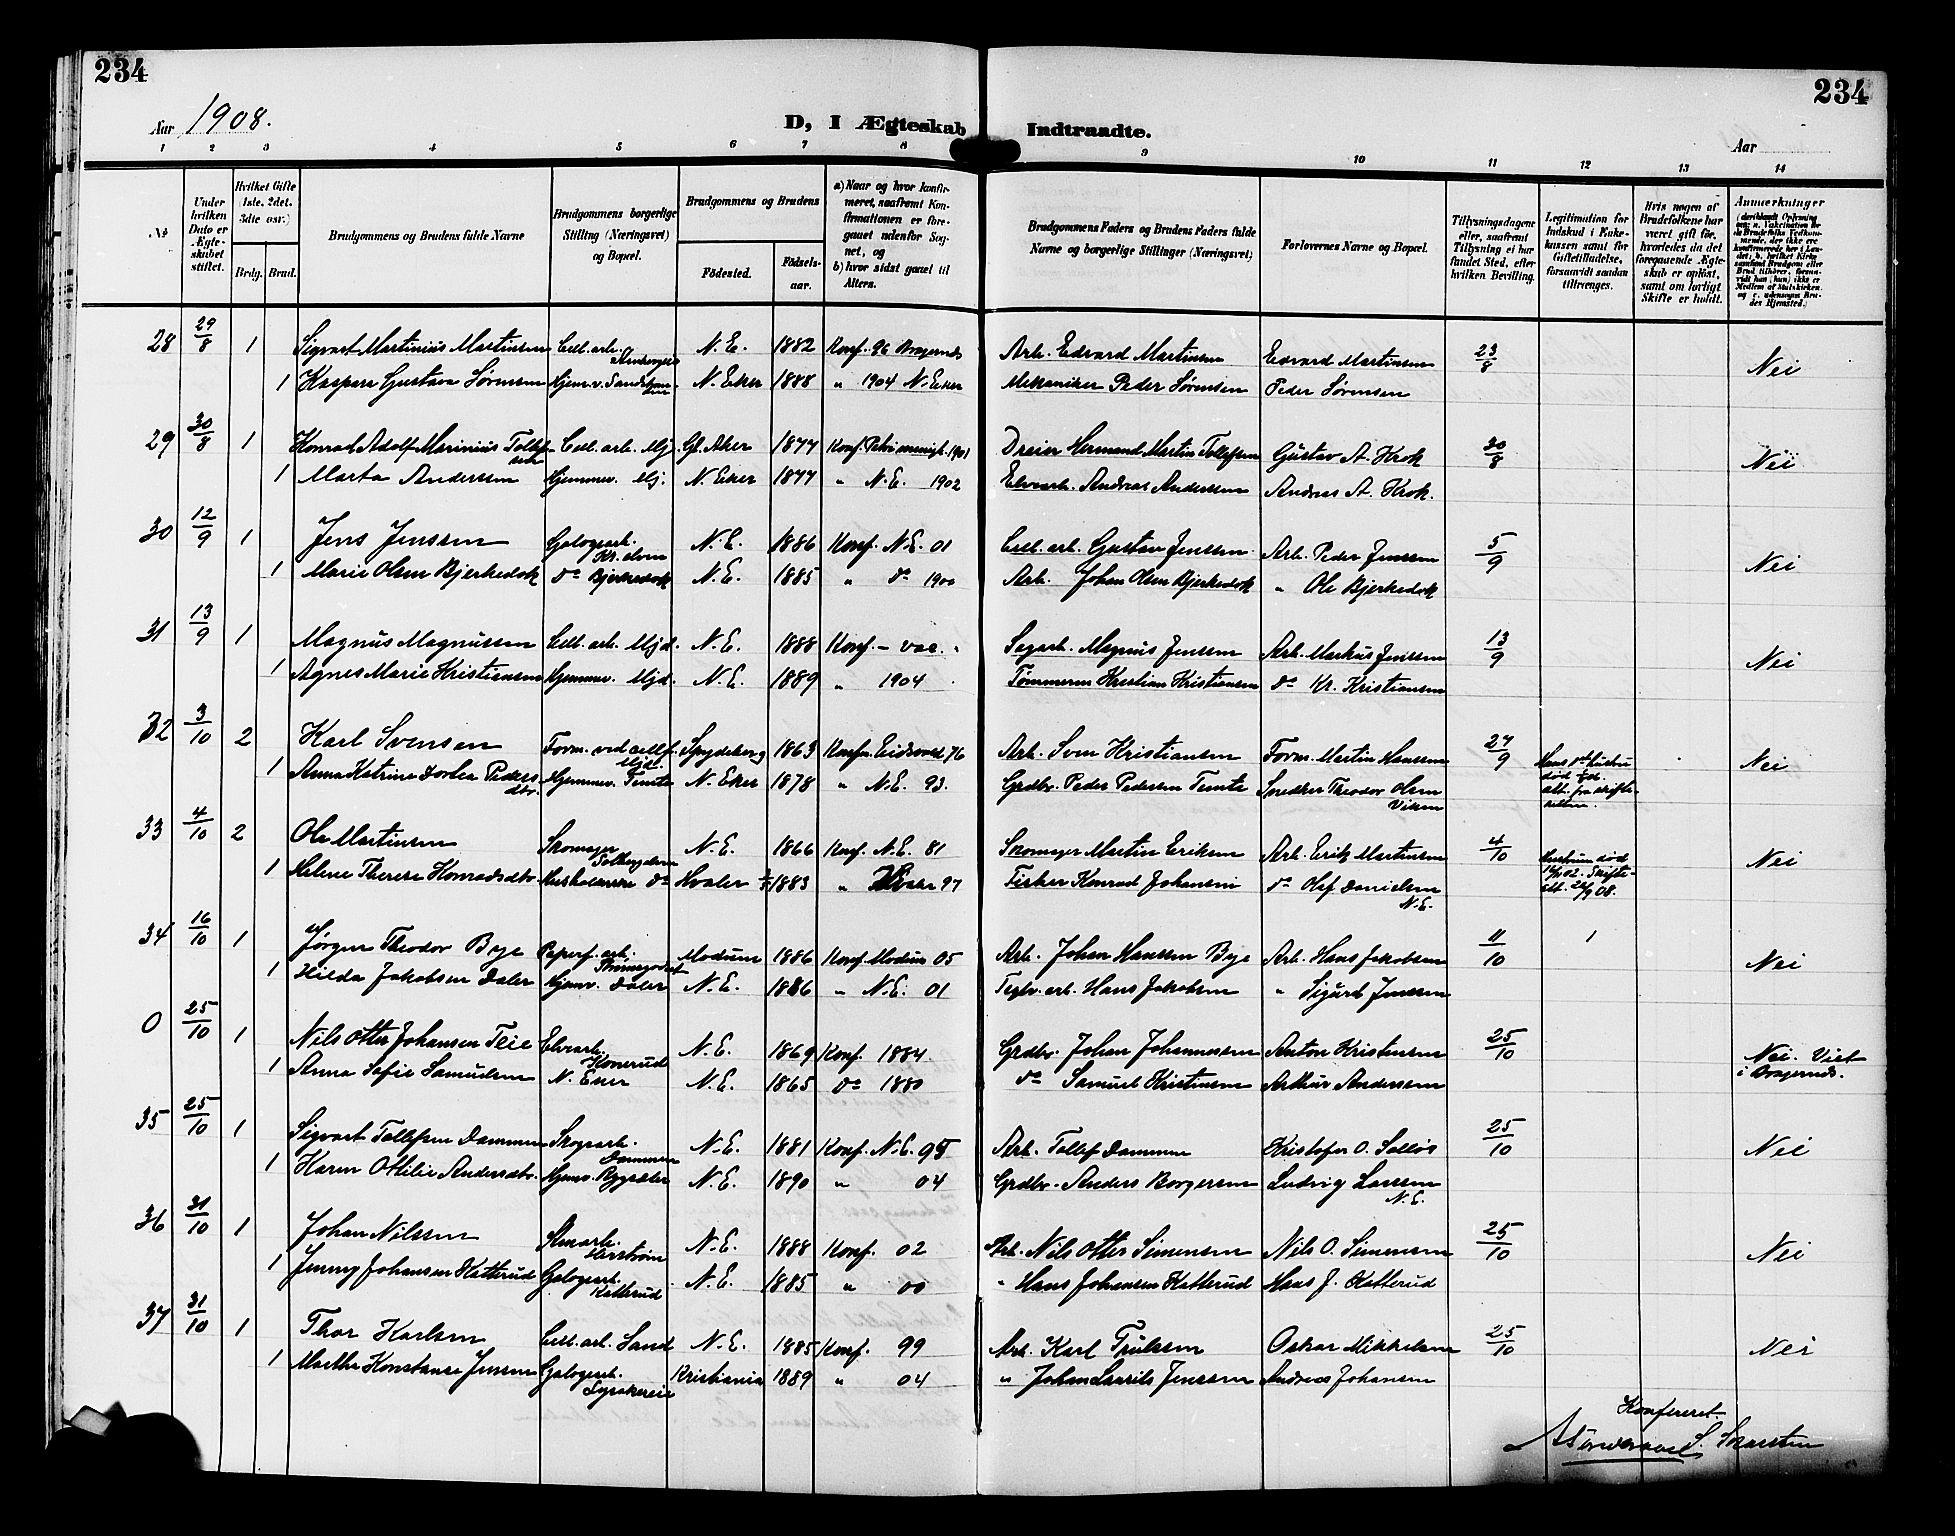 234
234
Aar 1908.
D, I Ægteskab Indtraadte.
Aar
1 2 3 4 5 6 7 8 9 10 11 12 13 14
No
Under hvilken Dato er Ægteskabet stiftet.
Hvilket Gifte (1ste, 2det, 3dte osv.)
Brdg. Brud.
Brudgommens og Brudens fulde Navne
Brudgommens borgerlige Stilling (Næringsvei) og Bopæl.
Brudgommens og Brudens
Födested.
Födselsaar.
a) Naar og hvor konfirmeret, saafremt Konfirmationen er foregaaet udenfor Sognet, og
b) hvor sidst gaaet til Alters.
Brudgommens Faders og Brudens Faders fulde Navne og borgerlige Stillinger (Næringsvei)
Forlovernes Navne og Bopæl.
Tillysningsdagene eller, saafremt Tillysning ei har fundet Sted, efter hvilken Bevilling.
Legitimation for Indskud i Enkekassen samt for Giftetilladelse, forsaavidt saadan tiltrænges.
Hvis nogen af Brudefolkene har været gift för, hvorledes da det foregaaende Ægteskab er oplöst, samt om lovligt Skifte er holdt.
Anmærkninger
28 29/8 1 Sigvart Martinius Martinsen Cell. arb. N.E. 1882 Konf. 96 Bragernæs Arb. Edvard Martinsen Edvard Martinsen 23/8 Nei
1 Kaspara Gustava Sørensen Hjem. v. N. Eker 1888 " 1904 N. Eker Mekaniker Peder Sørensen Peder Sørensen
29 30/8 1 Konrad Adolf Marinius Tollefsen Cell. arb. Mj. Gl. Aker 1877 Konf. Petri menigh. 1901 Dreier Hermand Martin Tollefsen Gustav A. Krok 30/8 Nei
1 Marta Anderssen Hjemmev. Mj. N. Eker 1877 " N.E. 1902 Elvearb. Andreas Anderssen Andreas A. Krok.
30 12/9 1 Jens Jenssen Galogearb. N.E. 1886 Konf. N.E. 01 Cell. arb. Gustav Jenssen Arb. Peder Jenssen 5/9 Nei
1 Marie Olsen Bjerkedok do Bjerkedok N.E. 1885 " do 1900 Arb. Johan Olsen Bjerkedok " Ole Bjerkedok
31 13/9 1 Magnus Magnussen Cell. arb. Mjd. N.E. 1888 Konf. - vac. Sagarb. Magnus Jenssen Arb. Markus Jenssen 13/9 Nei
1 Agnes Marie Kristiansen Hjemmev. Mjd. N.E. 1889 " 1904 Tømmerm. Kristian Kristiansen do Kr. Kristiansen
32 3/10 2 Karl Svensen Form. ved cellf. Mjd. Spydeberg 1863 Konfm. Eidsvold 76 Arb. Sven Kristiansen Form. Martin Hanssen 27/9 Nei
1 Anna Katrine Dorthea Pedersdtr. Hjemmev. Temte N. Eker 1878 " N.E. 93. Grdbr. Peder Pedersen Temte Snedker Theodor Olsen Viken
33 4/10 2 Ole Martinsen Skomager Solbergelven N.E. 1866 Konf. N.E. 81 Skomager Martin Eriksen Arb. Erik Martinsen 4/10 Nei
1 Helene Therese Konradsdtr. Husholderske do Hvaler 1883 " Hvaler 97 Fisker Konrad Johansen do Olaf Danielsen N.E.
34 16/10 1 Jørgen Theodor Bye Papirf. arb. Modum 1886 Konf. Modum 05 Arb. Johan Hanssen Bye Arb. Hans Jakobsen 11/10 1 Nei
1 Hilda Jakobsen Daler Hjemv. Daler N.E. 1886 " N.E. 01 Teglv. arb. Hans Jakobsen " Sigurd Jenssen
0 25/10 1 Nils Otter Johansen Teie Elvearb. Konerud N.E. 1869 Konf. 1884. Grdbr. Johan Johannessen Anton Kristensen 25/10 Nei. Viet i Bragernes.
1 Anna Sofie Samuelsen N. Eker N.E. 1865 do 1880 do Samuel Kristensen Arthur Anderssen
35 25/10 1 Sigvart Tollefsen Dammen Skogsarb. Dammen N.E. 1881 Konf. N.E. 95 Arb. Tollef Dammen Kristofer O. Solløs 25/10 Nei
1 Karen Ottilie Andersdtr. Hjemv. N.E. 1890 " 04 Grdbr. Anders Borgersen Ludvig Larssen N.E.
36 31/10 1 Johan Nilssen N.E. 1888 Konf. 02 Arb. Nils Otter Simensen Nils O. Simensen 25/10 Nei
1 Jenny Johansen Katterud Galogearb. Katterud N.E. 1885 " 00 " Hans Johansen Katterud Hans J. Katterud
37 31/10 1 Thor Karlsen Cell. arb. Sand N.E. 1885 Konf. 99 Arb. Karl Trulssen Oskar Mikkelsen 25/10 Nei
1 Marthe Konstanse Jenssen Galogearb. Kristiania 1889 " 04 " Johan Laurits Jenssen Andreas Johansen
Konfereret.